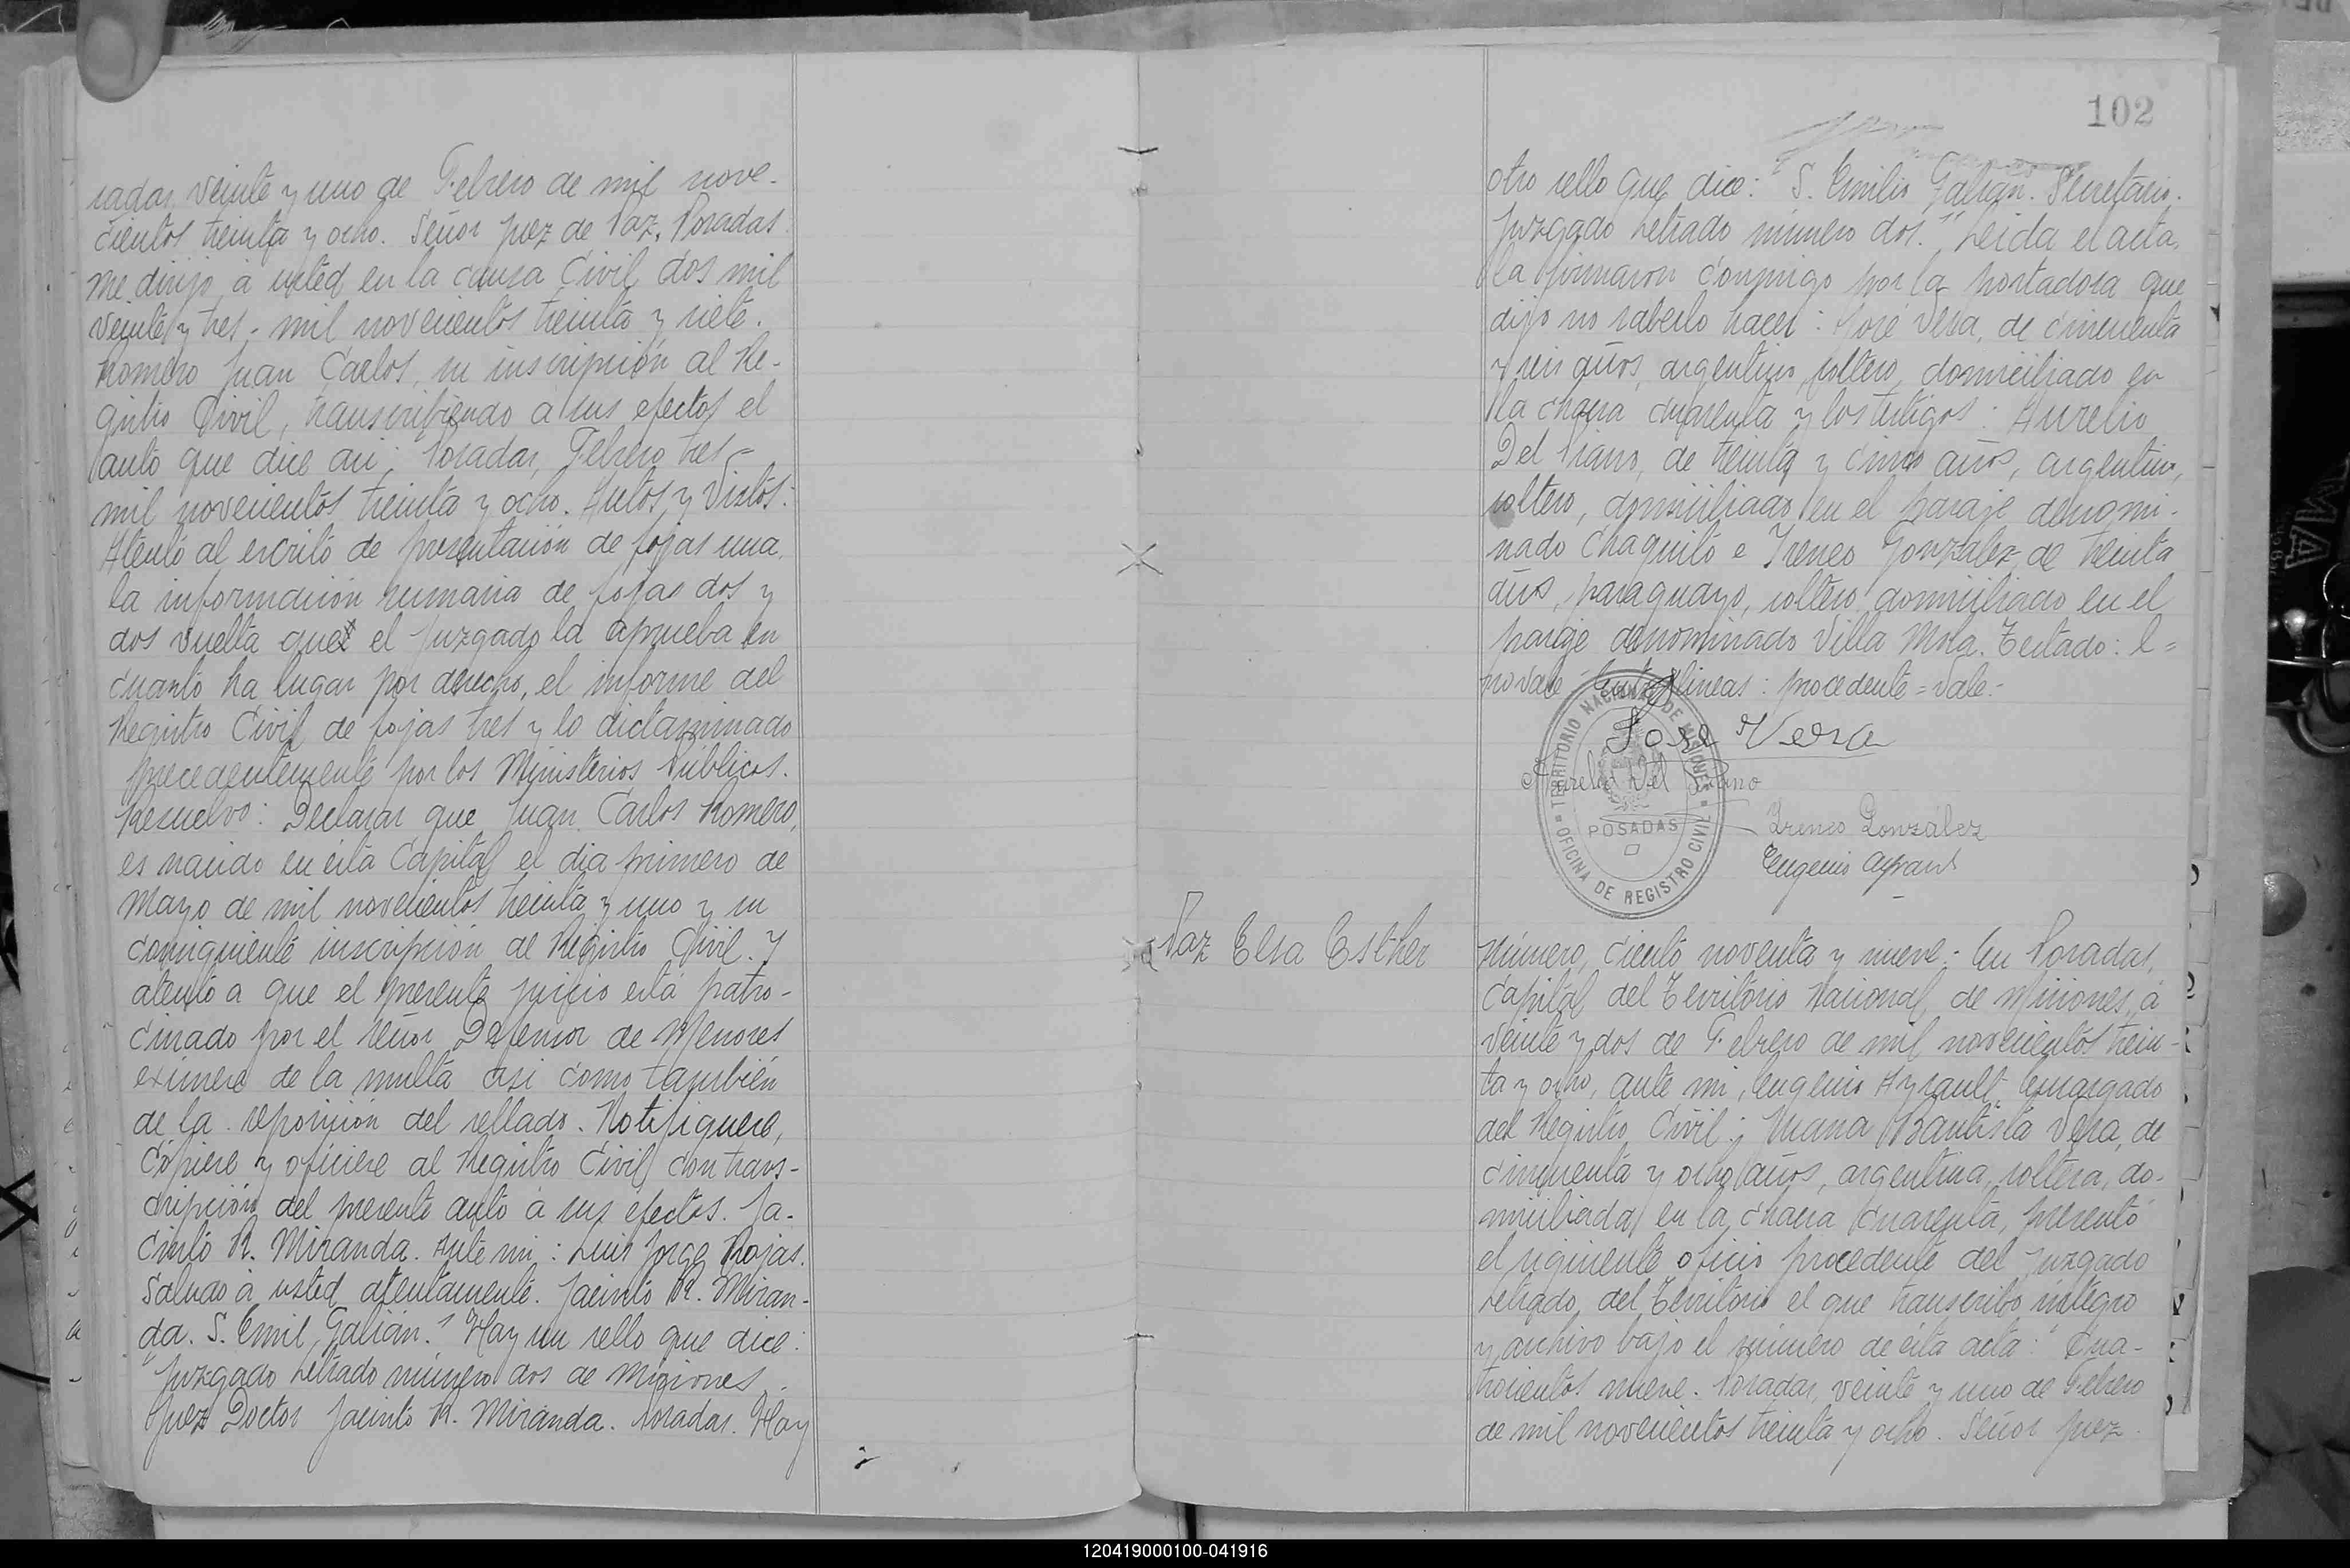 sadas, veinte y uno de Febrero de mil nove-
cientos treinta y ocho. Señor Juez de Paz. Posadas.
Me dirijo a usted en la causa Civil dos mil
veinte y tres - mil novecientos treinta y siete.
Romero Juan Carlos, su inscripción al Re-
gistro Civil, transcribiendo a sus efectos el
auto que dice asi: Posadas, Febrero tres -
mil novecientos treinta y ocho. Autos y Vistos:
Atento al escrito de presentación de fojas una,
la información sumaria de fojas dos y
dos vuelta que el Juzgado la aprueba en
cuanto ha lugar por derecho, el informe del
Registro Civil de fojas tres y lo dictaminado
precedentemente por los Ministerios Públicos.
Resuelvo: Declarar que Juan Carlos Romero,
es nacido en esta Capital el dia primero de
Mayo de mil novecientos treinta y uno y su
consiguiente inscripción al Registro Civil. Y
atento a que el presente juicio esta patro-
cinado por el señor Defensor de Menores
eximese de la multa asi como también
de la reposición del sellado. Notifiquese,
cópiese y ofíciese al Registro Civil con trans-
cripción del presente auto a sus efectos. Ja-
cinto R. Miranda. Ante mi: Luis Jorge Rojas.
Saludo a usted atentamente. Jacinto R. Miran-
da. S. Emil. Galián." Hay un sello que dice:
"Juzgado Letrado número dos de Misiones.
Juez Doctor Jacinto R. Miranda. Posadas. Hay
102
otro sello que dice: "S. Emilio Galián. Secretario.
Juzgado Letrado número dos." Leida el acta,
la firmaron conmigo por la portadora que
dijo no saberlo hacer: José Vera, de cincuenta
y seis años, argentino, soltero, domiciliado en
la chacra cuarenta y los testigos: Aurelio
Del Piano, de treinta y cinco años, argentino,
soltero, domiciliado en el paraje denomi-
nado Chaquito e Ireneo Gonzalez, de treinta
años, paraguayo, soltero, domiciliado en el
paraje denominado Villa Mra. Testado: l=
no vale. Entre líneas: procedente = Vale.-
José Vera
Aurelio Del Piano
Ireneo González
Eugenio Ayrault
TERRITORIO NACIONAL DE MISIONES
POSADAS
OFICINA DE REGISTRO CIVIL
Paz Elsa Esther
Número, ciento noventa y nueve.- En Posadas,
Capital del Territorio Nacional de Misiones, á
veinte y dos de Febrero de mil novecientos trein-
ta y ocho, ante mi, Eugenio Ayrault, Encargado
del Registro Civil; Juana Bautista Vera, de
cincuenta y ocho años, argentina, soltera, do-
miciliada en la chacra cuarenta, presentó
el siguiente oficio procedente del Juzgado
Letrado del Territorio el que transcribo íntegro
y archivo bajo el número de esta acta: "Cua-
trocientos nueve. Posadas, veinte y uno de Febrero
de mil novecientos treinta y ocho. Señor Juez
120419000100-041916